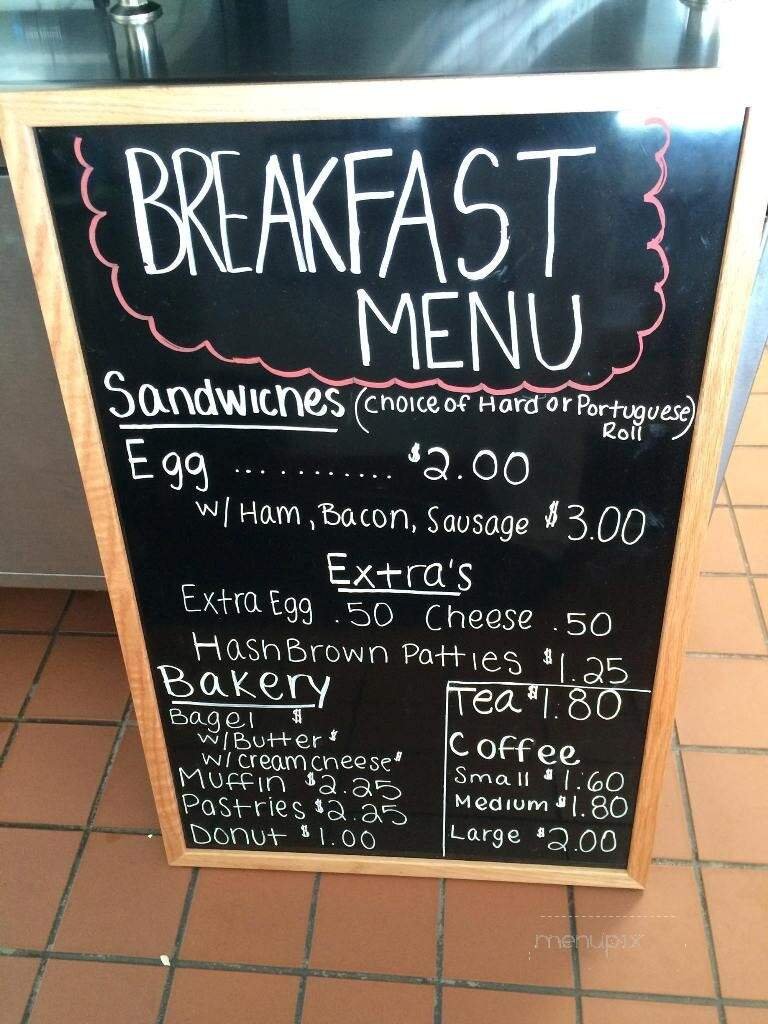 BREAKFAST
MENU
Sandwiches (Choice of Hard or Portuguese)
Roll
Egg ............ $2.00
w/ Ham, Bacon, Sausage $3.00
Extra's
Extra Egg .50 Cheese .50
Hash Brown Patties $1.25
Bakery
Bagel $
w/Butter $
w/creamcheese $
Muffin $2.25
Pastries $2.25
Donut $1.00
Tea $1.80
Coffee
Small $1.60
Medium $1.80
Large $2.00
menupix